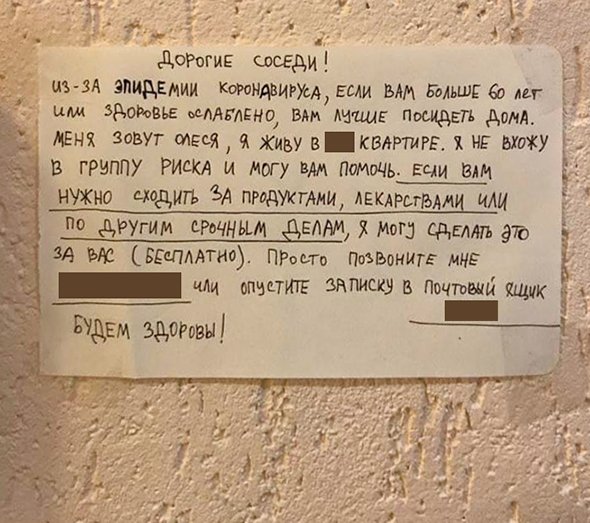 ДОРОГИЕ СОСЕДИ!
ИЗ-ЗА ЭПИДЕМИИ КОРОНАВИРУСА, ЕСЛИ ВАМ БОЛЬШЕ 60 ЛЕТ
ИЛИ ЗДОРОВЬЕ ОСЛАБЛЕНО, ВАМ ЛУЧШЕ ПОСИДЕТЬ ДОМА.
МЕНЯ ЗОВУТ ОЛЕСЯ, Я ЖИВУ В КВАРТИРЕ. Я НЕ ВХОЖУ
В ГРУППУ РИСКА И МОГУ ВАМ ПОМОЧЬ. ЕСЛИ ВАМ
НУЖНО СХОДИТЬ ЗА ПРОДУКТАМИ, ЛЕКАРСТВАМИ ИЛИ
ПО ДРУГИМ СРОЧНЫМ ДЕЛАМ, Я МОГУ СДЕЛАТЬ ЭТО
ЗА ВАС (БЕСПЛАТНО). ПРОСТО ПОЗВОНИТЕ МНЕ
ИЛИ ОПУСТИТЕ ЗАПИСКУ В ПОЧТОВЫЙ ЯЩИК
БУДЕМ ЗДОРОВЫ!